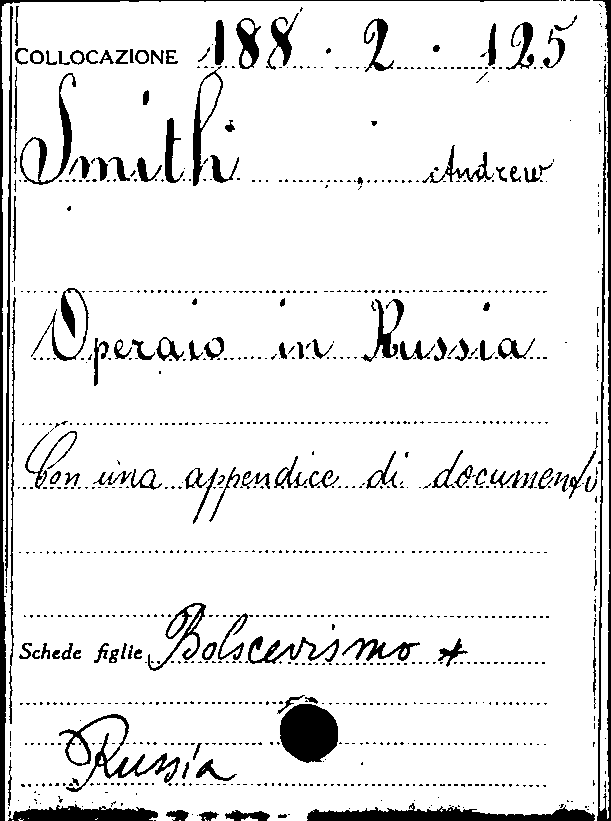 COLLOCAZIONE 188 . 2 . 125
Smith , Andrew
Operaio in Russia
Con una appendice di documenti
Schede figlie Bolscevismo +
Russia